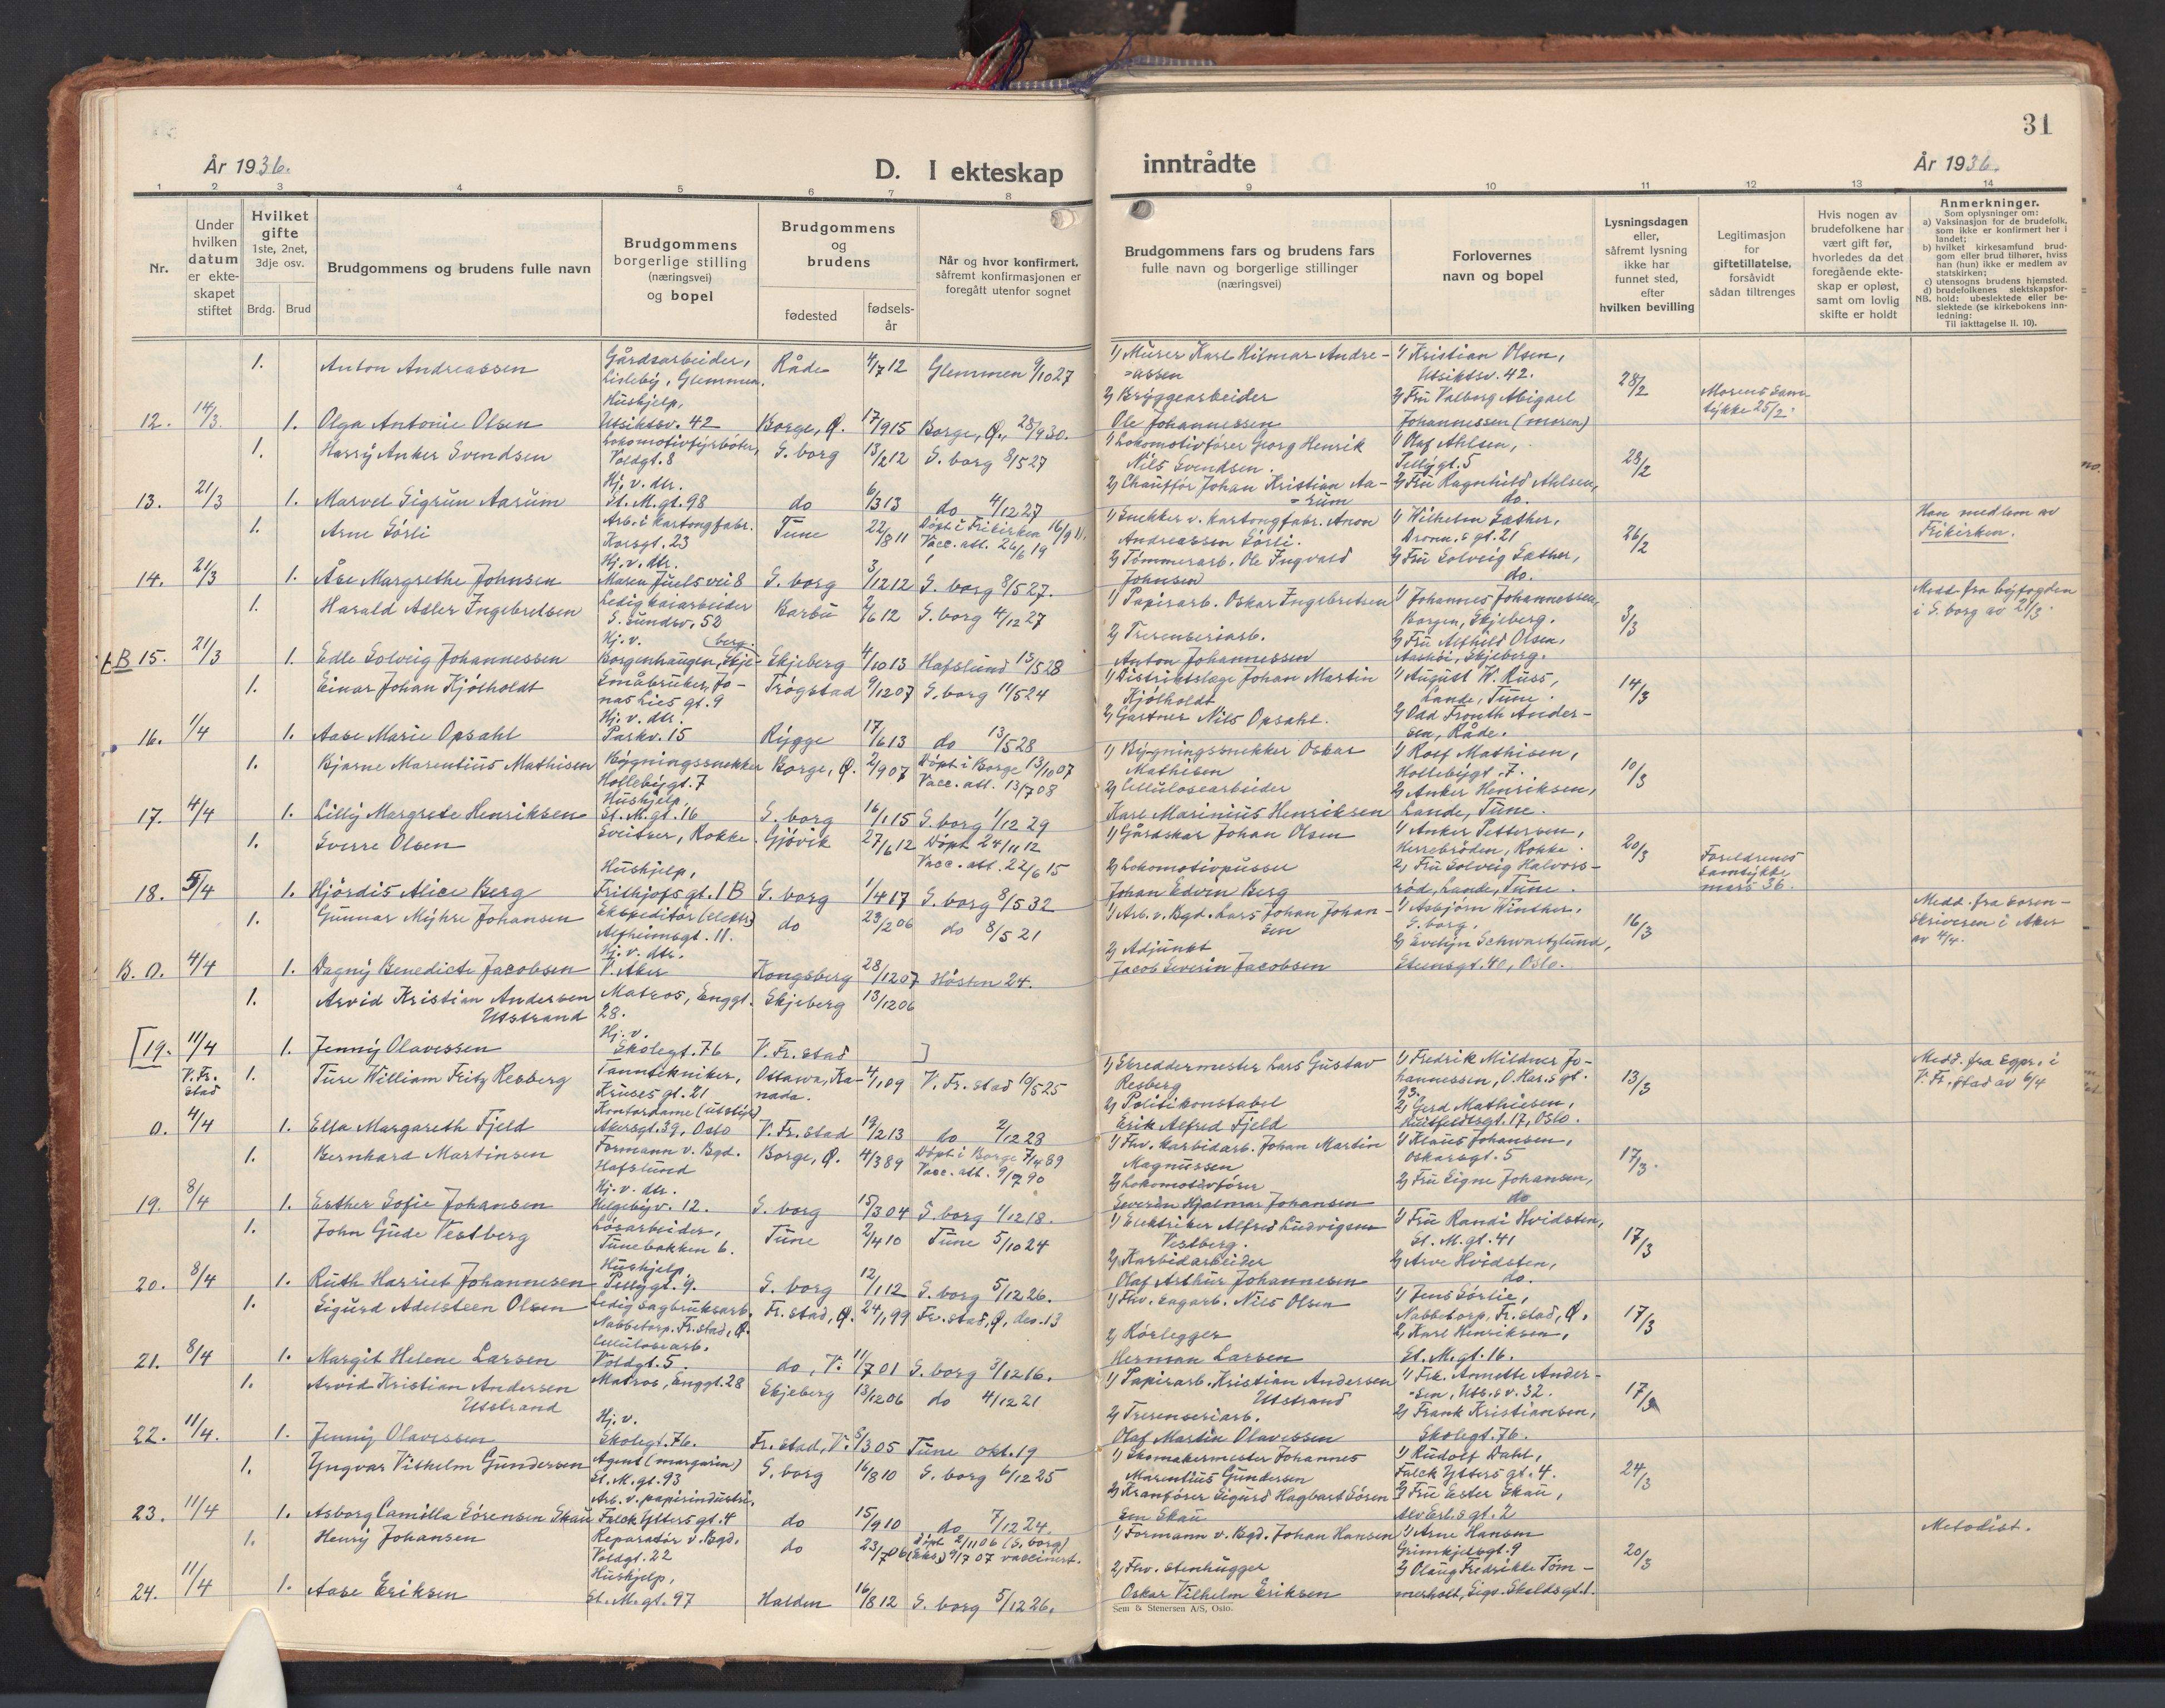 31
År 1936.
D. I ekteskap
inntrådte
År 1936.
1 2 3 4 5 6 7 8 9 10 11 12 13 14
Nr.
Under hvilken datum er ekteskapet stiftet
Hvilket gifte 1ste, 2net, 3dje osv.
Brdg. Brud
Brudgommens og brudens fulle navn
Brudgommens borgerlige stilling (næringsvei) og bopel
Brudgommens og brudens
fødested
fødsels-år
Når og hvor konfirmert, såfremt konfirmasjonen er foregått utenfor sognet
Brudgommens fars og brudens fars fulle navn og borgerlige stillinger (næringsvei)
Forlovernes navn og bopel
Lysningsdagen eller, såfremt lysning ikke har funnet sted, efter hvilken bevilling
Legitimasjon for giftetillatelse, forsåvidt sådan tiltrenges
Hvis nogen av brudefolkene har vært gift før, hvorledes da det foregående ekteskap er opløst, samt om lovlig skifte er holdt
Anmerkninger.
Som oplysninger om:
a) Vaksinasjon for de brudefolk, som ikke er konfirmert her i landet;
b) hvilket kirkesamfund brudgom eller brud tilhører, hviss han (hun) ikke er medlem av statskirken;
c) utensogns brudens hjemsted.
d) brudefolkenes slektskapsforhold: ubeslektede eller beslektede (se kirkebokens innledning:
NB. Til iakttagelse II. 10).
1. Anton Andreassen Gårdsarbeider, Lisleby, Glemmen. Råde 4/7 12 Glemmen 9/10 27 1) Murer Karl Hilmar Andreassen 1) Kristian Olsen, Utsiktsv. 42. 28/2 Morens Samtykke 25/2.
12. 14/3. 1. Olga Antonie Olsen Hushjelp, Utsiktsv. 42 Borge, Ø. 17/9 15 Borge, Ø., 28/9 30. 2) Bryggearbeider Ole Johannessen 2) Fru Valborg Abigael Johannessen (moren)
1. Harry Anker Svendsen Lokomotivfyrbøter, Voldgt. 8 S. borg 13/2 12 S. borg 8/5 27 1) Lokomotivfører Georg Henrik Nils Svendsen. 1) Olaf Ahlsen, Pellygt. 5 28/2
13. 21/3 1. Marvel Sigrun Aarum Hj. v. dtr. St. M. gt. 98 do 6/3 13 do 4/12 27 2) Chauffør Johan Kristian Aarum 2) Fru Ragnhild Ahlsen, do.
1. Arne Sørli Arb. i Kartongfabr. Korsgt. 23 Tune 22/8 11 Døpt i Frikirken 16/9 11. Vacc. att. 26/6 19 1) Snekker v. Kartongfabr. Anon Andreassen Sørli. 1) Wilhelm Sæther, Dronn.s gt. 21 26/2 Han medlem av Frikirken.
14. 21/3 1. Åse Margrethe Johnsen Hj. v. dtr. Maren Juels vei 8 S. borg 3/12 12 S. borg 8/5 27. 2) Tømmerarb. Ole Ingvald Johnsen 2) Fru Solveig Sæther, do.
1. Harald Adler Ingebretsen Ledig kaiarbeider S. Sundsv. 52 Barbu 2/6 12 S. borg 4/12 27 1) Papirarb. Oskar Ingebretsen 1) Johannes Johannessen, Borgen, Skjeberg. 3/3 Medd. fra byfogden i S. borg av 21/3.
B 15. 21/3 1. Edle Solveig Johannessen Hj. v. Borgenhaugen, Skjeberg. Skjeberg 4/10 13 Hafslund 13/5 28 2) Tresenseriarb. Anton Johannessen 2) Fru Alfhild Olsen, Skjeberg.
1. Einar Johan Kjølholdt Småbruker, Jonas Lies gt. 9 Trøgstad 9/12 07 S. borg 11/5 24 1) Distriktslæge Johan Martin Kjølholdt 1) August W. Russ, Lande, Tune. 14/3
16. 1/4 1. Aase Marie Opsahl Hj. v. dtr. Parkv. 15 Rygge 17/6 13 do 13/5 28 2) Gartner Nils Opsahl. 2) Odd Andersen, Råde.
1. Bjarne Marentius Mathisen Bygningssnekker Hollebygt. 7 Borge, Ø. 2/9 07 Døpt i Borge 13/10 07 Vacc. att. 13/7 08 1) Bygningssnekker Oskar Mathisen 1) Rolf Mathisen, Hollebygt. 7. 10/3
17. 4/4 1. Lilly Margrete Henriksen Hushjelp, St. M. gt. 16 S. borg 16/1 15 S. borg 1/12 29 2) Cellulosearbeider Karl Marinius Henriksen 2) Anker Henriksen, Lande, Tune.
1. Sverre Olsen Sveitser, Rokke Gjøvik 27/6 12 Døpt 24/11 12 Vacc. att. 22/6 15 1) Gårdskar Johan Olsen 1) Anker Pettersen, Herrebrøden, Rokke. 20/3 Foreldrenes samtykke mars 36.
18. 5/4 1. Hjørdis Alice Berg Hushjelp, Frithjofs gt. 1B S. borg 1/4 17 S. borg 8/5 32 2) Lokomotivpusser Johan Edvin Berg 2) Fru Solveig Halvorsrød, Lande, Tune.
1. Gunnar Myhre Johansen Ekspeditør (elektr.) Alfheimsgt. 11. do 23/2 06 do 8/5 21 1) Arb. v. Bgd. Lars Johan Johansen 1) Asbjørn Winther, S. borg. 16/3 Medd. fra sorenskriveren i Aker av 4/4.
B. O. 4/4 1. Dagny Benedicte Jacobsen Hj. v. dtr. V. Aker Kongsberg 28/12 07 Høsten 24. 2) Adjunkt Jacob Severin Jacobsen 2) Evelyn Schwartzlund, Steensgt. 40, Oslo.
1. Arvid Kristian Andersen Utstrand Matros, Enggt. 28. Skjeberg 13/12 06
[19. 11/4 1. Jenny Olavessen Hj. v. Skolegt. 76 V. Fr. stad ]
V. Fr. stad 1. Ture William Fritz Resberg Tanntekniker, Kruses gt. 21 Ottawa, Kanada. 4/1 09 V. Fr. stad 10/5 25 1) Skreddermester Lars Gustav Resberg 1) Fredrik Mildner Johannessen, O. Kar.s gt. 93. 13/3 Medd. fra sgpr. i V. Fr. stad av 6/4
O. 4/4 1. Ella Margareth Fjeld Kontordame (utstyr) Akersgt. 39, Oslo V. Fr. stad 19/2 13 do 2/12 28 2) Politikonstabel Erik Alfred Fjeld 2) Gerd Mathiesen, Huitfeldtsgt. 17, Oslo.
1. Bernhard Martinsen Formann v. Bgd. Hafslund Borge, Ø. 4/3 89 Døpt i Borge 7/4 89 Vacc. att. 9/7 90 1) Fhv. Karbidarb. Johan Martin Magnussen 1) Klaus Johansen, Oskarsgt. 5 17/3.
19. 8/4 1. Esther Sofie Johansen Hj. v. dtr. Helgebyv. 12. S. borg 15/3 04 S. borg 1/12 18. 2) Lokomotivfører Severin Hjalmar Johansen 2) Fru Signe Johansen, do
1. John Gude Vestberg Løsarbeider, Tunebakken 6. Tune 2/4 10 Tune 5/10 24 1) Elektriker Alfred Ludvigsen Vestberg. 1) Fru Randi Hvidsten, St. M. gt. 41 17/3
20. 8/4 1. Ruth Harriet Johannesen Hushjelp, Pellygt. 9. S. borg 12/1 12 S. borg 5/12 26. 2) Karbidarbeider Olaf Arthur Johannesen 2) Arve Hvidsten, do.
1. Sigurd Adelsteen Olsen Ledig sagbruksarb. Nabbetorp. Fr. stad, Ø. Fr. stad, Ø. 24/1 99 Fr. stad, Ø, des. 13 1) Fhv. sagarb. Nils Olsen 1) Jens Sørlie, Nabbetorp, Fr. stad, Ø. 17/3
21. 8/4 1. Margit Helene Larsen Cellulosearb. Voldgt. 5. do, V. 11/7 01 S. borg 3/12 16. 2) Rørlegger Herman Larsen 2) Karl Henriksen, St. M. gt. 16.
1. Arvid Kristian Andersen Utstrand Matros, Enggt. 28 Skjeberg 13/12 06 do 4/12 21 1) Papirarb. Kristian Andersen Utstrand 1) Frk. Annette Andersen, Uts.s v. 32. 17/3
22. 11/4. 1. Jenny Olavessen Hj. v. Skolegt. 76. Fr. stad, V. 5/3 05 Tune okt. 19 2) Tresenseriarb. Olaf Martin Olavessen 2) Frank Kristiansen, Skolegt. 76.
1. Yngvar Vilhelm Gundersen Agent (margarin) St. M. gt. 93 S. borg 16/8 10 S. borg 6/12 25 1) Skomakermester Johannes Marentius Gundersen 1) Rudolf Dahl, Falck Ytters gt. 4. 24/3
23. 11/4 1. Asborg Camilla Sørensen Skau Arb. v. papirindustri, Falck Ytters gt. 4 do 15/9 10 do 7/12 24. 2) Kranfører Sigurd Hagbart Sørensen Skau 2) Fru Ester Skau, Alv Erl.s gt. 2
1. Henry Johansen Reparatør v. Bgd. Voldgt. 22 do 23/7 06 Døpt 2/11 06 (S. borg) 9/7 07 vaccinert. 1) Formann v. Bgd. Johan Hansen 1) Arne Hansen Grimkjelsgt. 9 20/3 Metodist.
24. 11/4 1. Aase Eriksen Hushjelp, St. M. gt. 97 Halden 16/8 12 S. borg 5/12 26. 2) Fhv. stenhugger Oskar Vilhelm Eriksen 2) Olaug Fredrikke Tømmerholt, Sigv. Skaldsgt. 1.
Sem & Stenersen A/S, Oslo.